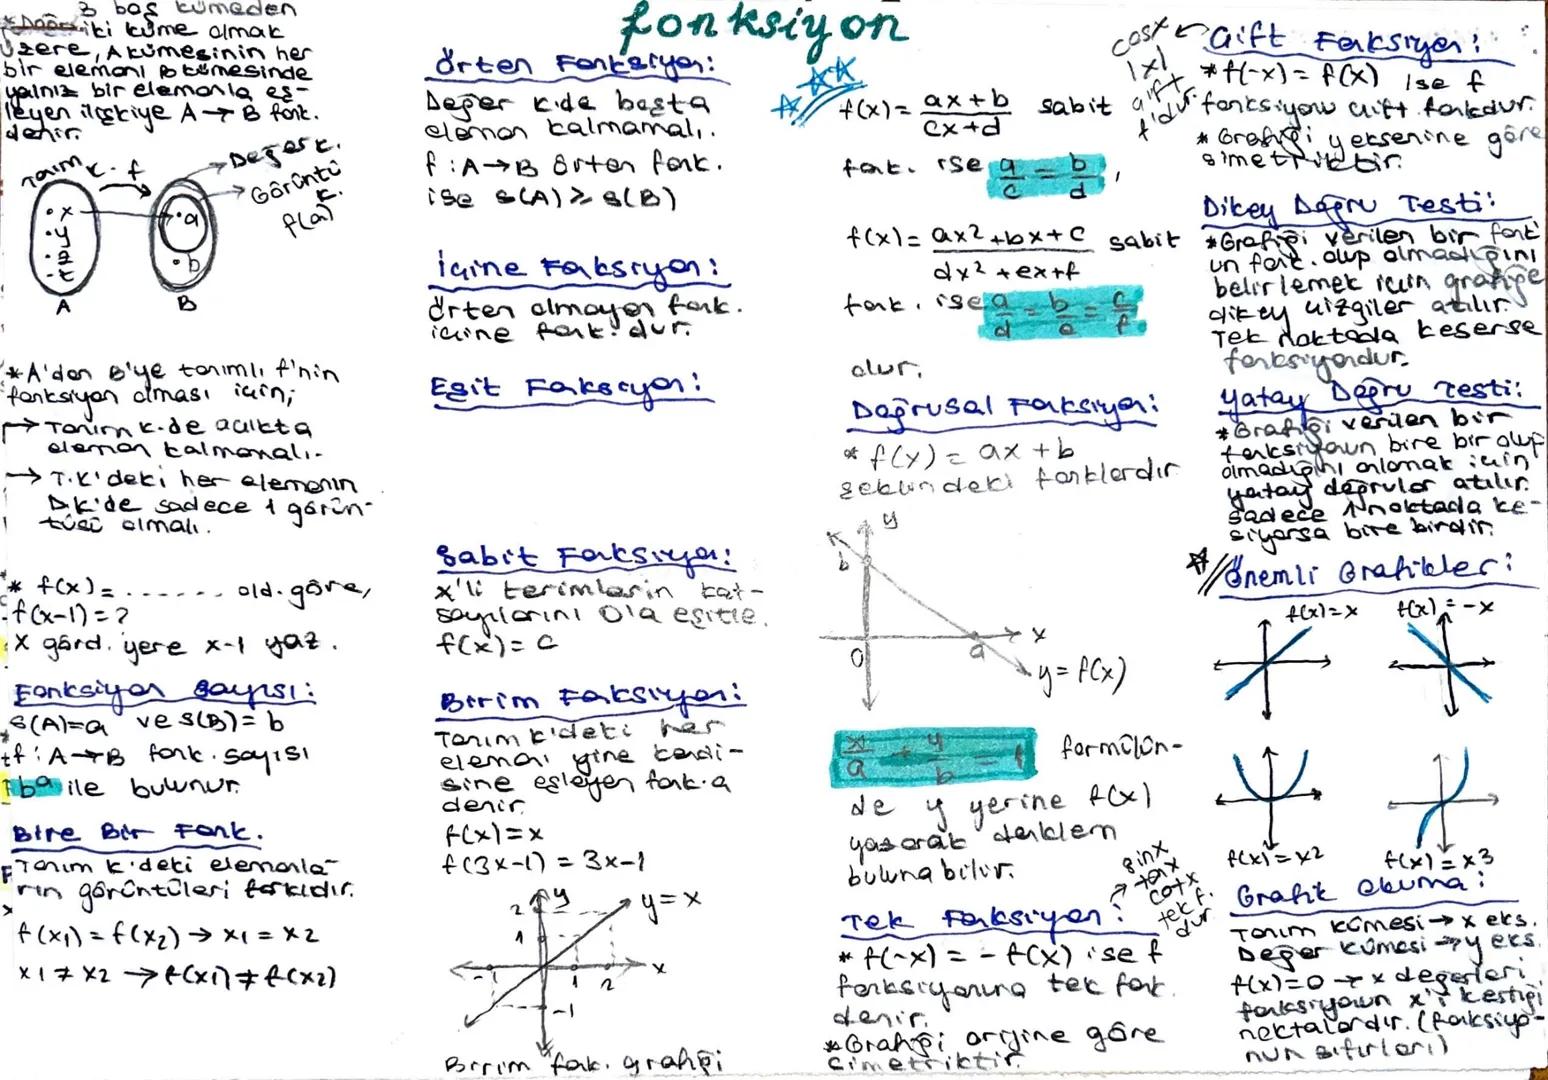 fonksiyon
boş kümeden
iki küme olmak
üzere, A kümesinin her
bir elemanı B kümesinde
yalnız bir elemanla eş-
leyen ilişkiye A → B fonk.
denir.
Tanım k. f
Değer k.
Görüntü
k.
f(a)
x
y
z
t
a
b
A
B
* A'dan B'ye tanımlı f'nin
fonksiyon olması için;
→ Tanım k.de açıkta
eleman kalmamalı.
→ T.K'deki her elemanın
D.k'de sadece 1 görün-
tüsü olmalı.
* f(x) = ...... old. göre,
f(x-1) = ?
x görd. yere x-1 yaz.
Fonksiyon Sayısı:
s(A)=a ve s(B)=b
f: A → B fonk. sayısı
bᵃ ile bulunur.
Bire Bir Fonk.
Tanım k'deki elemanla-
rın görüntüleri farklıdır.
f(x1) = f(x2) → x1 = x2
x1 ≠ x2 → f(x1) ≠ f(x2)
Örten Fonksiyon:
Değer k.de boşta
eleman kalmamalı.
f: A→B örten fonk.
ise s(A) ≥ s(B)
İçine Fonksiyon:
Örten olmayan fonk.
içine fonk.dur.
Eşit Fonksiyon:
Sabit Fonksiyon:
x'li terimlerin kat-
sayılarını 0'a eşitle.
f(x) = c
Birim Fonksiyon:
Tanım k'deki her
elemanı yine kendi-
sine eşleyen fonk.a
denir.
f(x)=x
f(3x-1) = 3x-1
y
2
1
y = x
x
-1
1
2
-1
Birim fonk. grafiği
f(x) = ax+b / cx+d sabit
fonk. ise a/c = b/d,
f(x) = ax²+bx+c / dx²+ex+f sabit
fonk. ise a/d = b/e = c/f
olur.
Doğrusal Fonksiyon:
* f(x) = ax + b
şeklindeki fonklardır
y
b
0
a
x
y = f(x)
x/a + y/b = 1 formülün-
de y yerine f(x)
yazarak denklem
bulunabilir.
sinx
tanx
cotx
tek f.
dur
Tek Fonksiyon:
* f(-x) = - f(x) ise f
fonksiyonuna tek fonk.
denir.
* Grafiği orijine göre
simetriktir.
cosx
|x|
çift
f'dur.
Çift Fonksiyon:
* f(-x) = f(x) ise f
fonksiyonu çift fonkdur.
* Grafiği y eksenine göre
simetriktir.
Dikey Doğru Testi:
* Grafiği verilen bir fonk'
un fonk. olup olmadığını
belirlemek için grafiğe
dikey çizgiler atılır.
Tek noktada keserse
fonksiyondur.
Yatay Doğru Testi:
* Grafiği verilen bir
fonksiyonun bire bir olup
olmadığını anlamak için
yatay doğrular atılır.
sadece 1 noktada ke-
siyorsa bire birdir.
Önemli Grafikler:
f(x)=x f(x) = -x
f(x) = x2 f(x) = x3
Grafik Okuma:
Tanım kümesi → x eks.
Değer kümesi → y eks.
f(x)=0 → x değerleri
fonksiyonun x'i kestiği
noktalardır. (fonksiyo-
nun sıfırları)